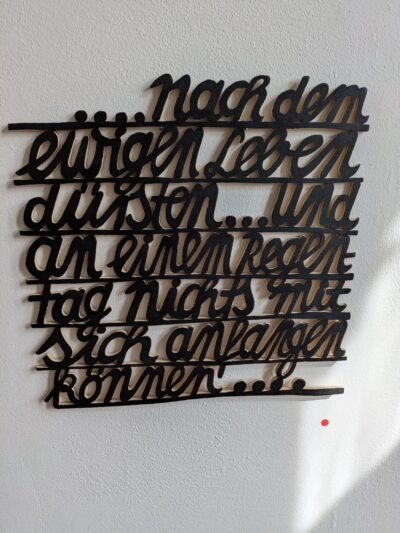 ....nach dem
ewigen Leben
dürsten...und
an einem Regen-
tag nichts mit
sich anfangen
können.....